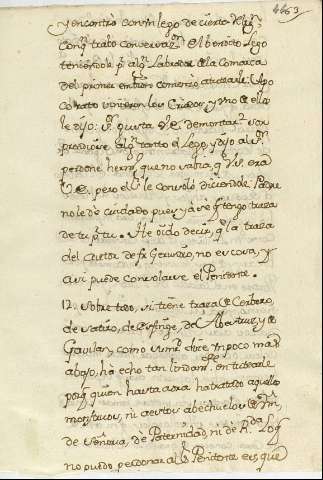 4463
y encontró con un lego de cierta
con qn trabó conversacn. El bendito Lego
teniendole pr algn Labrador de la Comarca
del primer embion comenzó a tutearle. A po
co ratto vinieron los Criados, y uno de ellos
le dijo: Sr gusta V.E. demontar?
algn tanto el Lego, y dijo al Sr.
perdone hermo que no sabia q V.S. era
V.E. pero el Sr le consoló diciendole: Padre
no le dé cuidado pues ya se q tengo traza
de tu pr tu. He oido decir, q la traza
del Autor de fr Gerundio, no es esa, y
assi puede consolarse el Penitente.
12. Sobre todo, si tiene traza de Cerbero,
de satiro, de esfinge, de Abestruz, y de
Gavilan, como Vmd dice un poco mas
abajo, ha echo tan lindamte en tutearle
porq quien hasta aora ha tratado a aquellos
monstruos, ni a estos abechuelos de Vm,
de Señoria, de Paternidad, ni de Rda. Lo q
no puedo perdonar al Pe Penitente es, que